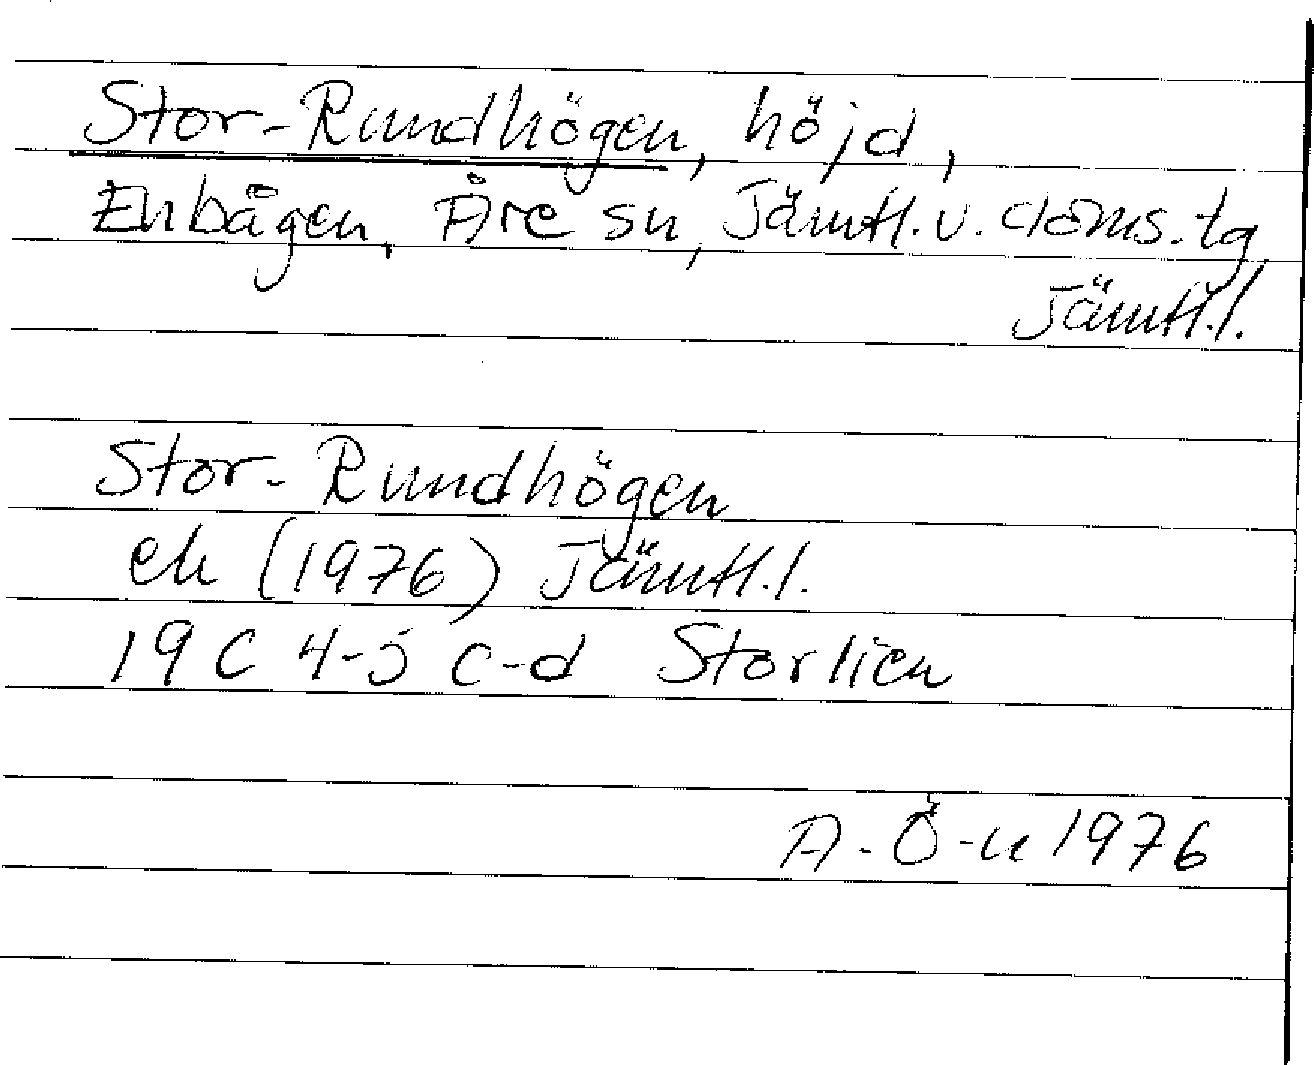 Stor-Rundhögen, höjd,
Enbågen, Åre sn, Jämtl. v. doms. tg,
Jämtl. l.
Stor-Rundhögen
ek (1976) Jämtl. l.
19 C 4-5 c-d Storlien
A. Ö-n 1976